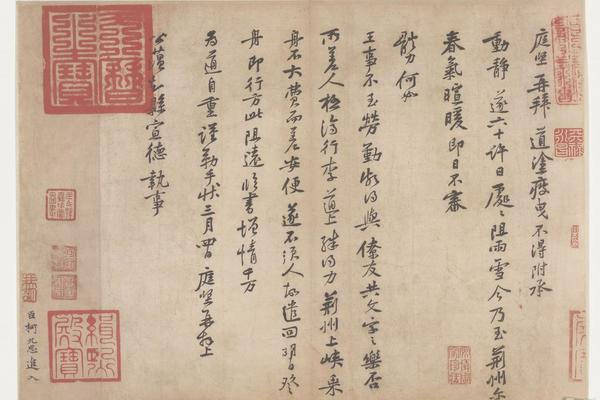 庭堅再拜 道塗疲曳 不得附承
動靜 遂六十許日 處々阻雨雪 今乃至荊州尔
春氣暄暖 即日不審
體力何如
王事不至勞勤 頗得與僚友共文字之樂否
所差人極濟行李 道上殊得力 荊州上峽乘
舟不大費而差安便 遂不須人 故遣回 明日發
舟即行 方此阻遠 臨書增情 千万
為道自重 謹勒手狀 三月四日 庭堅再拜上
公蘊知縣宣德 執事
天曆之寶
緝熙殿寶
臣柯九思進入